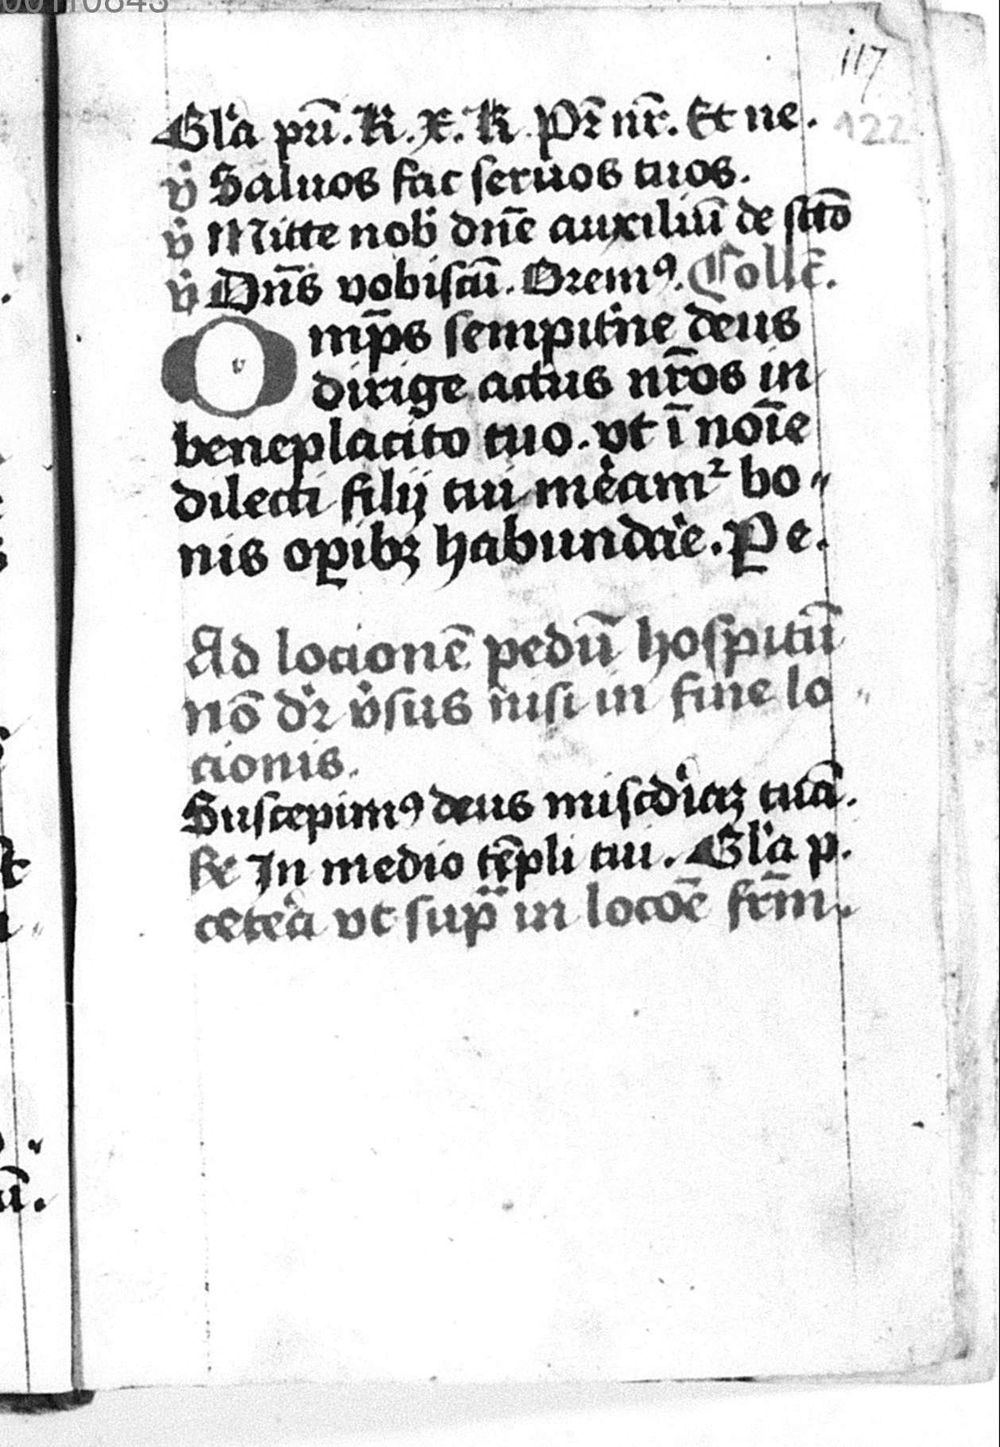 00110843
117
122
Gl'a pri̅. K. x. K. Pr̅ nr̅. Et ne.
v̓ Saluos fac seruos tuos.
v̓ Mitte nob̓ dn̅e auxiliu̅ de sc̅to
v̓ Dn̅s vobiscu̅. Oremꝰ. Colle̅c.
Omp̅s sempit̓ne deus
dirige actus nr̅os in
beneplacito tuo. vt i̅ noi̅e
dilecti filij tui me̓amͬ bo-
nis oꝑibꝫ habunda̓e. Pe.
Ad locione̅ pedu̅ hospitu̅
no̅ dr̓ v̓sus nisi in fine lo-
cionis.
Suscepimꝰ deus misc̅dia̅ꝫ tua̅.
℣ In medio te̅pli tui. Gl'a p.
cete̓a vt sup̓ in locoe̅ fr̅m.